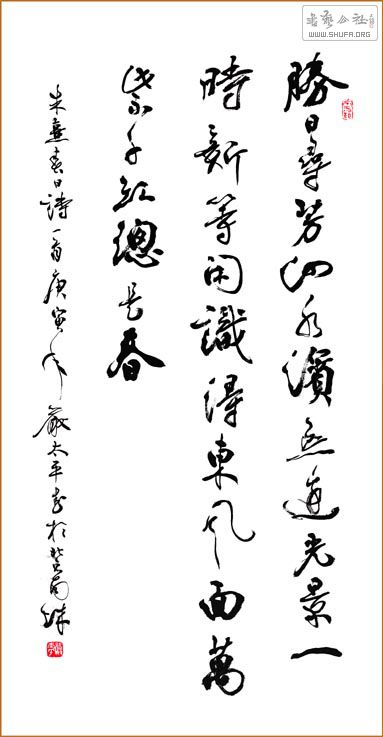 勝日尋芳泗水濱無邊光景一
時新等閑識得東風面萬
紫千紅總是春
朱熹春日詩一首庚寅年嚴太平書於
書艺公社
WWW.SHUFA.ORG